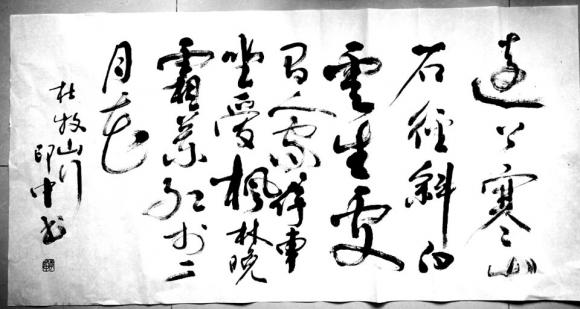 遠上寒山
石徑斜白
雲生處
有人家停車
坐愛楓林晚
霜葉紅於二
月花
杜牧山行
中书